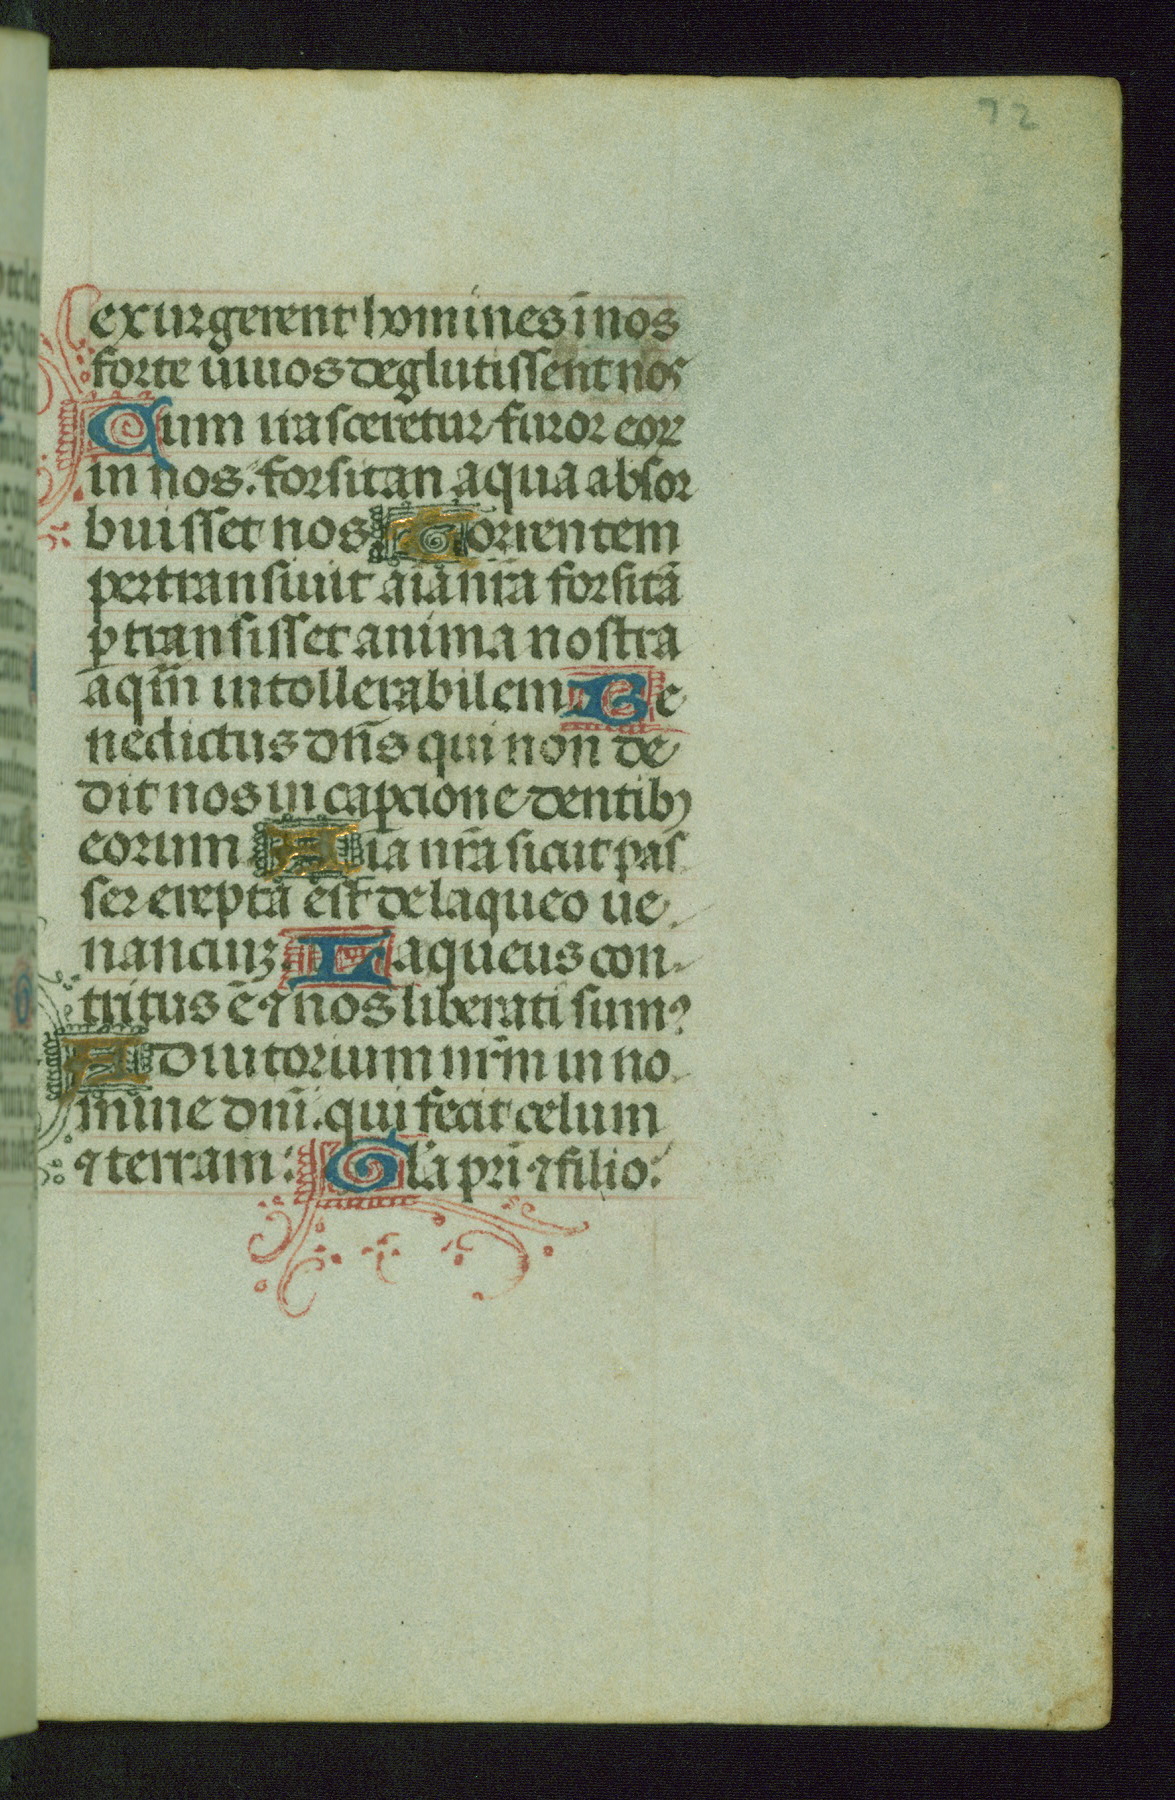 72
exurgerent homines ī nos
forte uiuos deglutissent nos
Cum irasceretur furor eoꝝ
in nos: forsitan aqua absor
buisset nos. Torrentem
pertransiuit aīa nr̄a forsitā
ꝑtransisset anima nostra
aqm̄ intollerabilem Be
nedictus dn̄s qui non de
dit nos in capcione dentibꝫ
eorum Aīa nr̄a sicut pas
ser erepta est de laqueo ue
nanciuꝫ Laqueus con-
tritus ē ⁊ nos liberati sumꝰ
Adiutorium nr̄m in no
mine dn̄i. qui fecit celum
⁊ terram: Gl̄a pr̄i ⁊ filio.